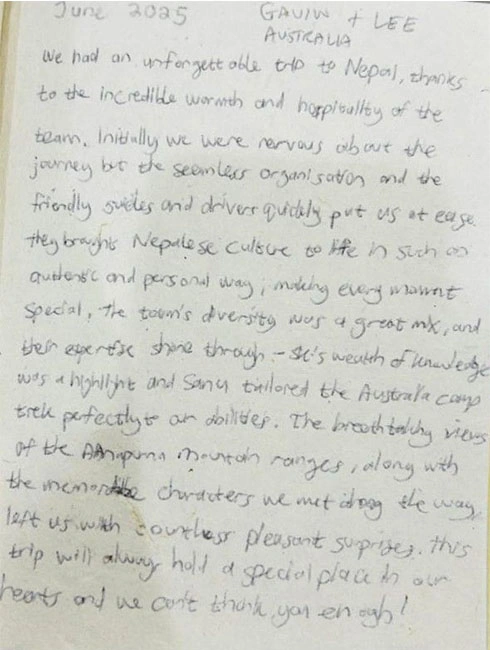 June 2025
GAVIN + LEE
AUSTRALIA
We had an unforgettable trip to Nepal, thanks
to the incredible warmth and hospitality of the
team. Initially we were nervous about the
journey but the seamless organisation and the
friendly guides and drivers quickly put us at ease.
they brought Nepalese culture to life in such an
authentic and personal way, making every moment
special, the town's diversity was a great mix, and
their expertise shone through - SK's wealth of knowledge
was a highlight and Sanu tailored the Australia camp
trek perfectly to our abilities. The breathtaking views
of the Annapurna mountain ranges, along with
the memorable characters we met along the way,
left us with countless pleasant surprises. This
trip will always hold a special place in our
hearts and we can't thank you enogh!